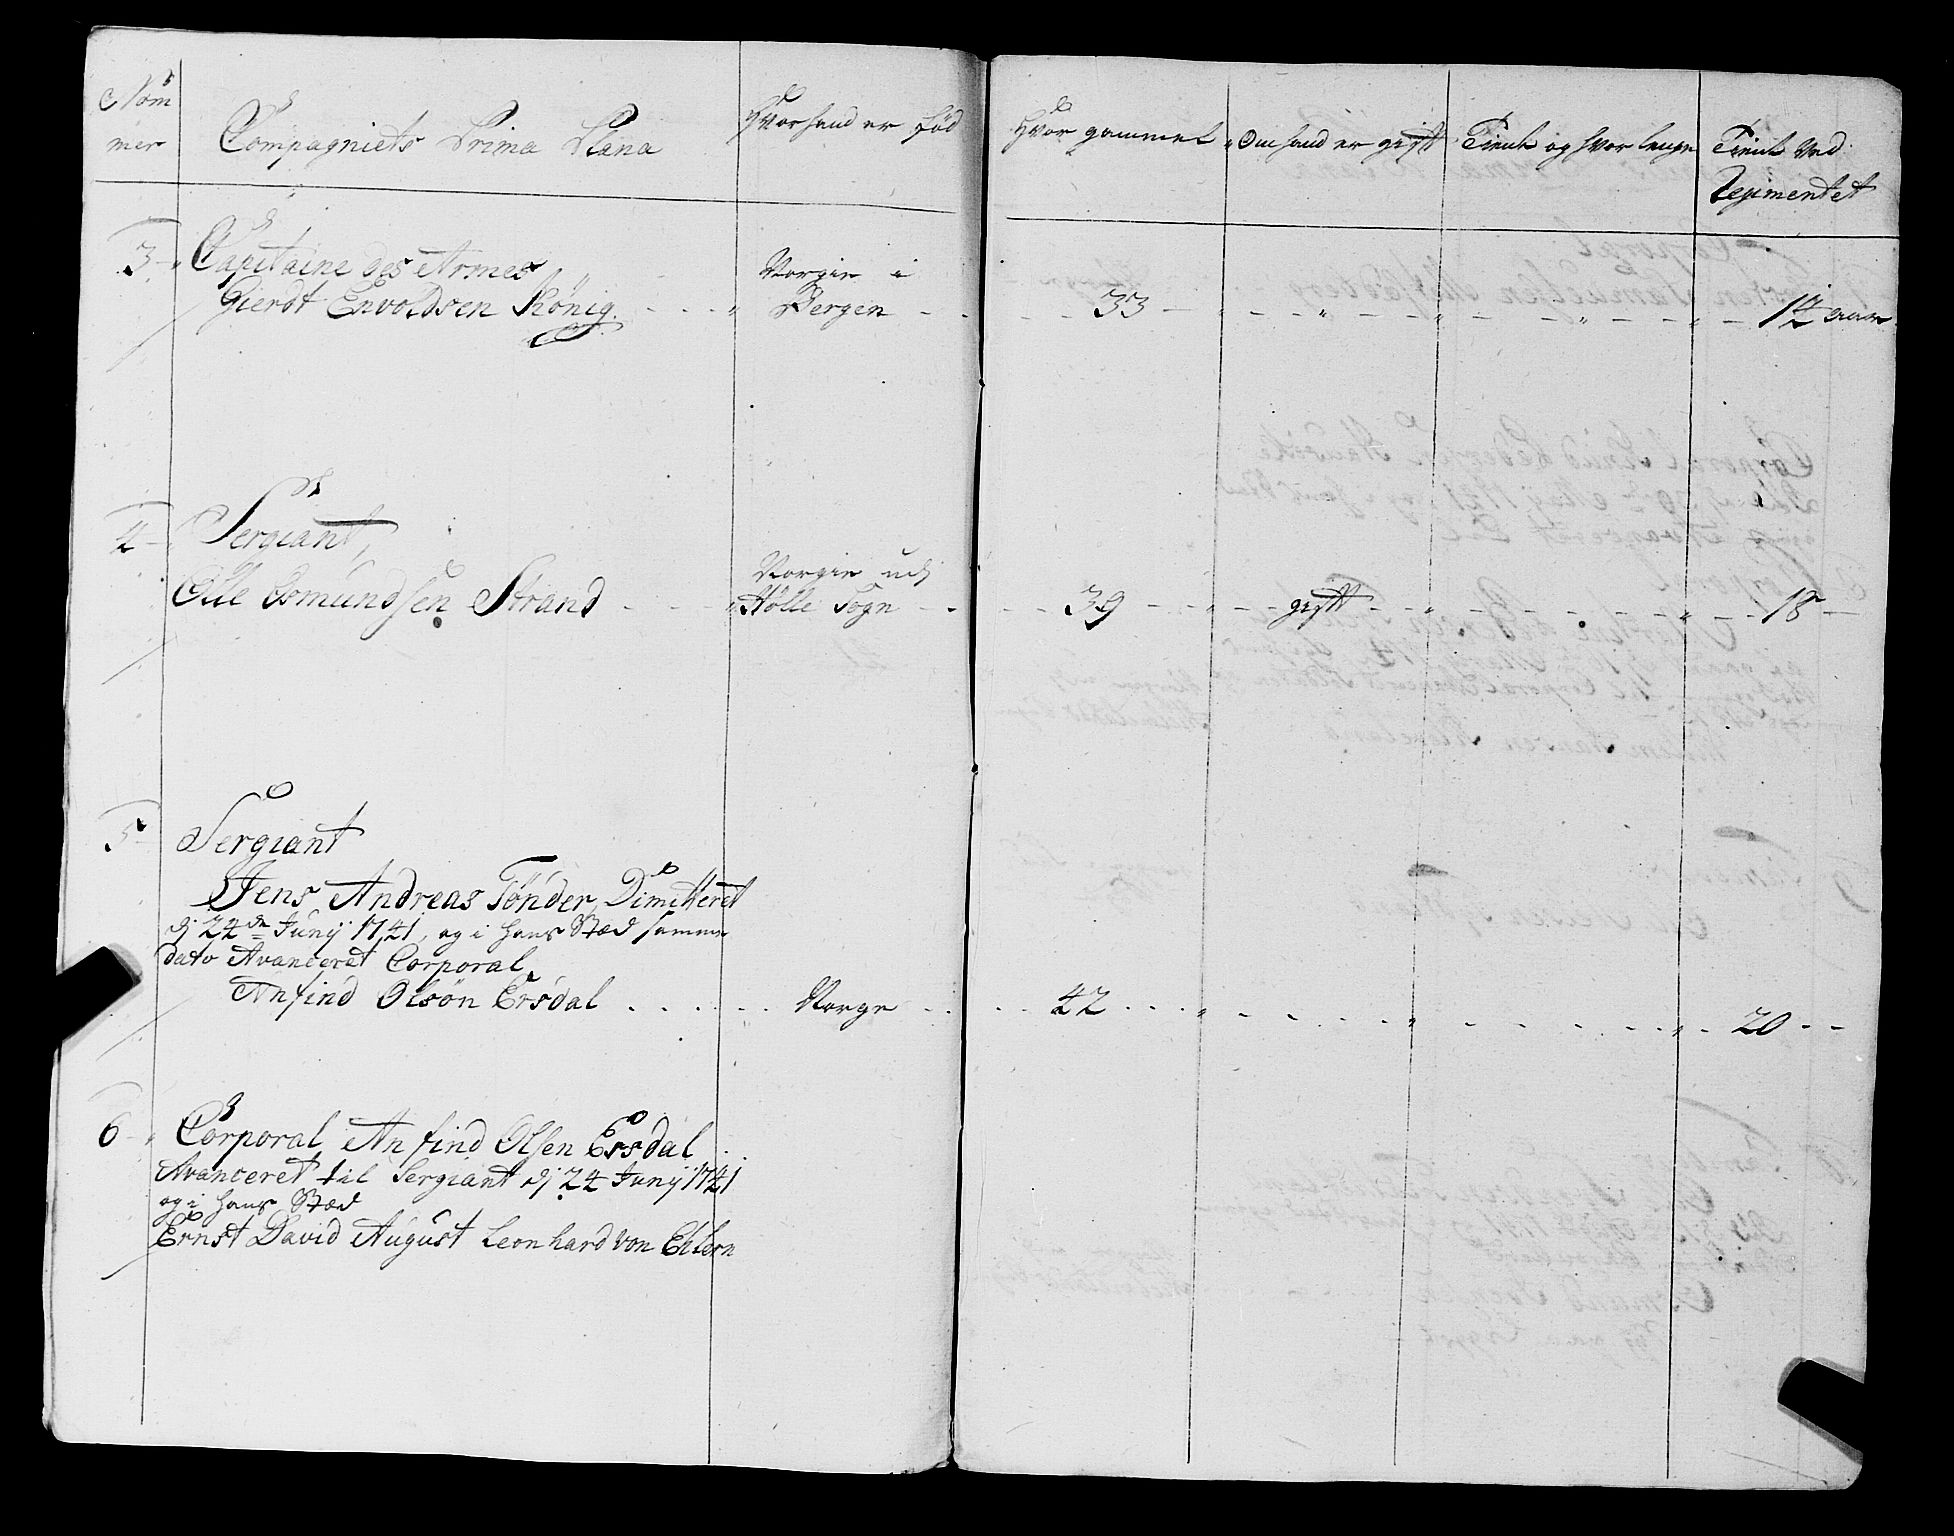 Nom
mer
Compagniets Prima Plana
Hvor hand er fød
Hvor gammel
Om hand er gift
Tient og hvor lenge
Tient ved
Regimentet
3
Capitaine des Armes
Gierdt Envoldsen König
Norgie i
Bergen
33
14 aar
4
Sergiant,
Olle Osmundsen Strand
Norgie udj
Hölle Sogn
39
gift
18
5
Sergiant
Jens Andreas Tönder, Dimitteret
dj 24de Junij 1741, og i hans Stæd samme
dato Avanceret Corporal
Anfind Olsön Ersdal
Norge
42
20
6
Corporal Anfind Olsen Ersdal
Avanceret til Sergiant dj 24 Junij 1741
og i hans Stæd
Ernst David August Leonhard von Ehlern